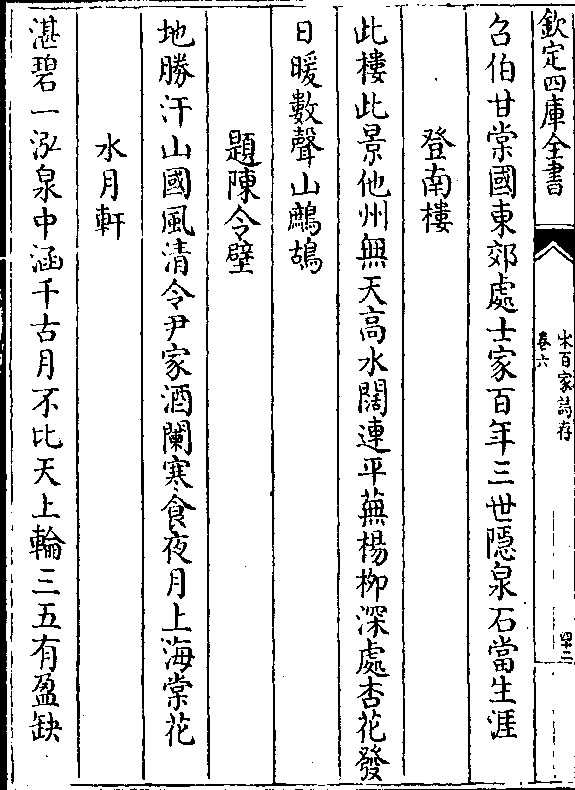 欽定四庫全書
宋百家詩存
卷六
四十二
召伯甘棠國東郊處士家百年三世隱泉石當生涯
登南樓
此樓此景他州無天高水闊連平蕪楊柳深處杏花發
日暖數聲山鷓鴣
題陳令壁
地勝汗山國風清令尹家酒闌寒食夜月上海棠花
水月軒
湛碧一泓泉中涵千古月不比天上輪三五有盈缺